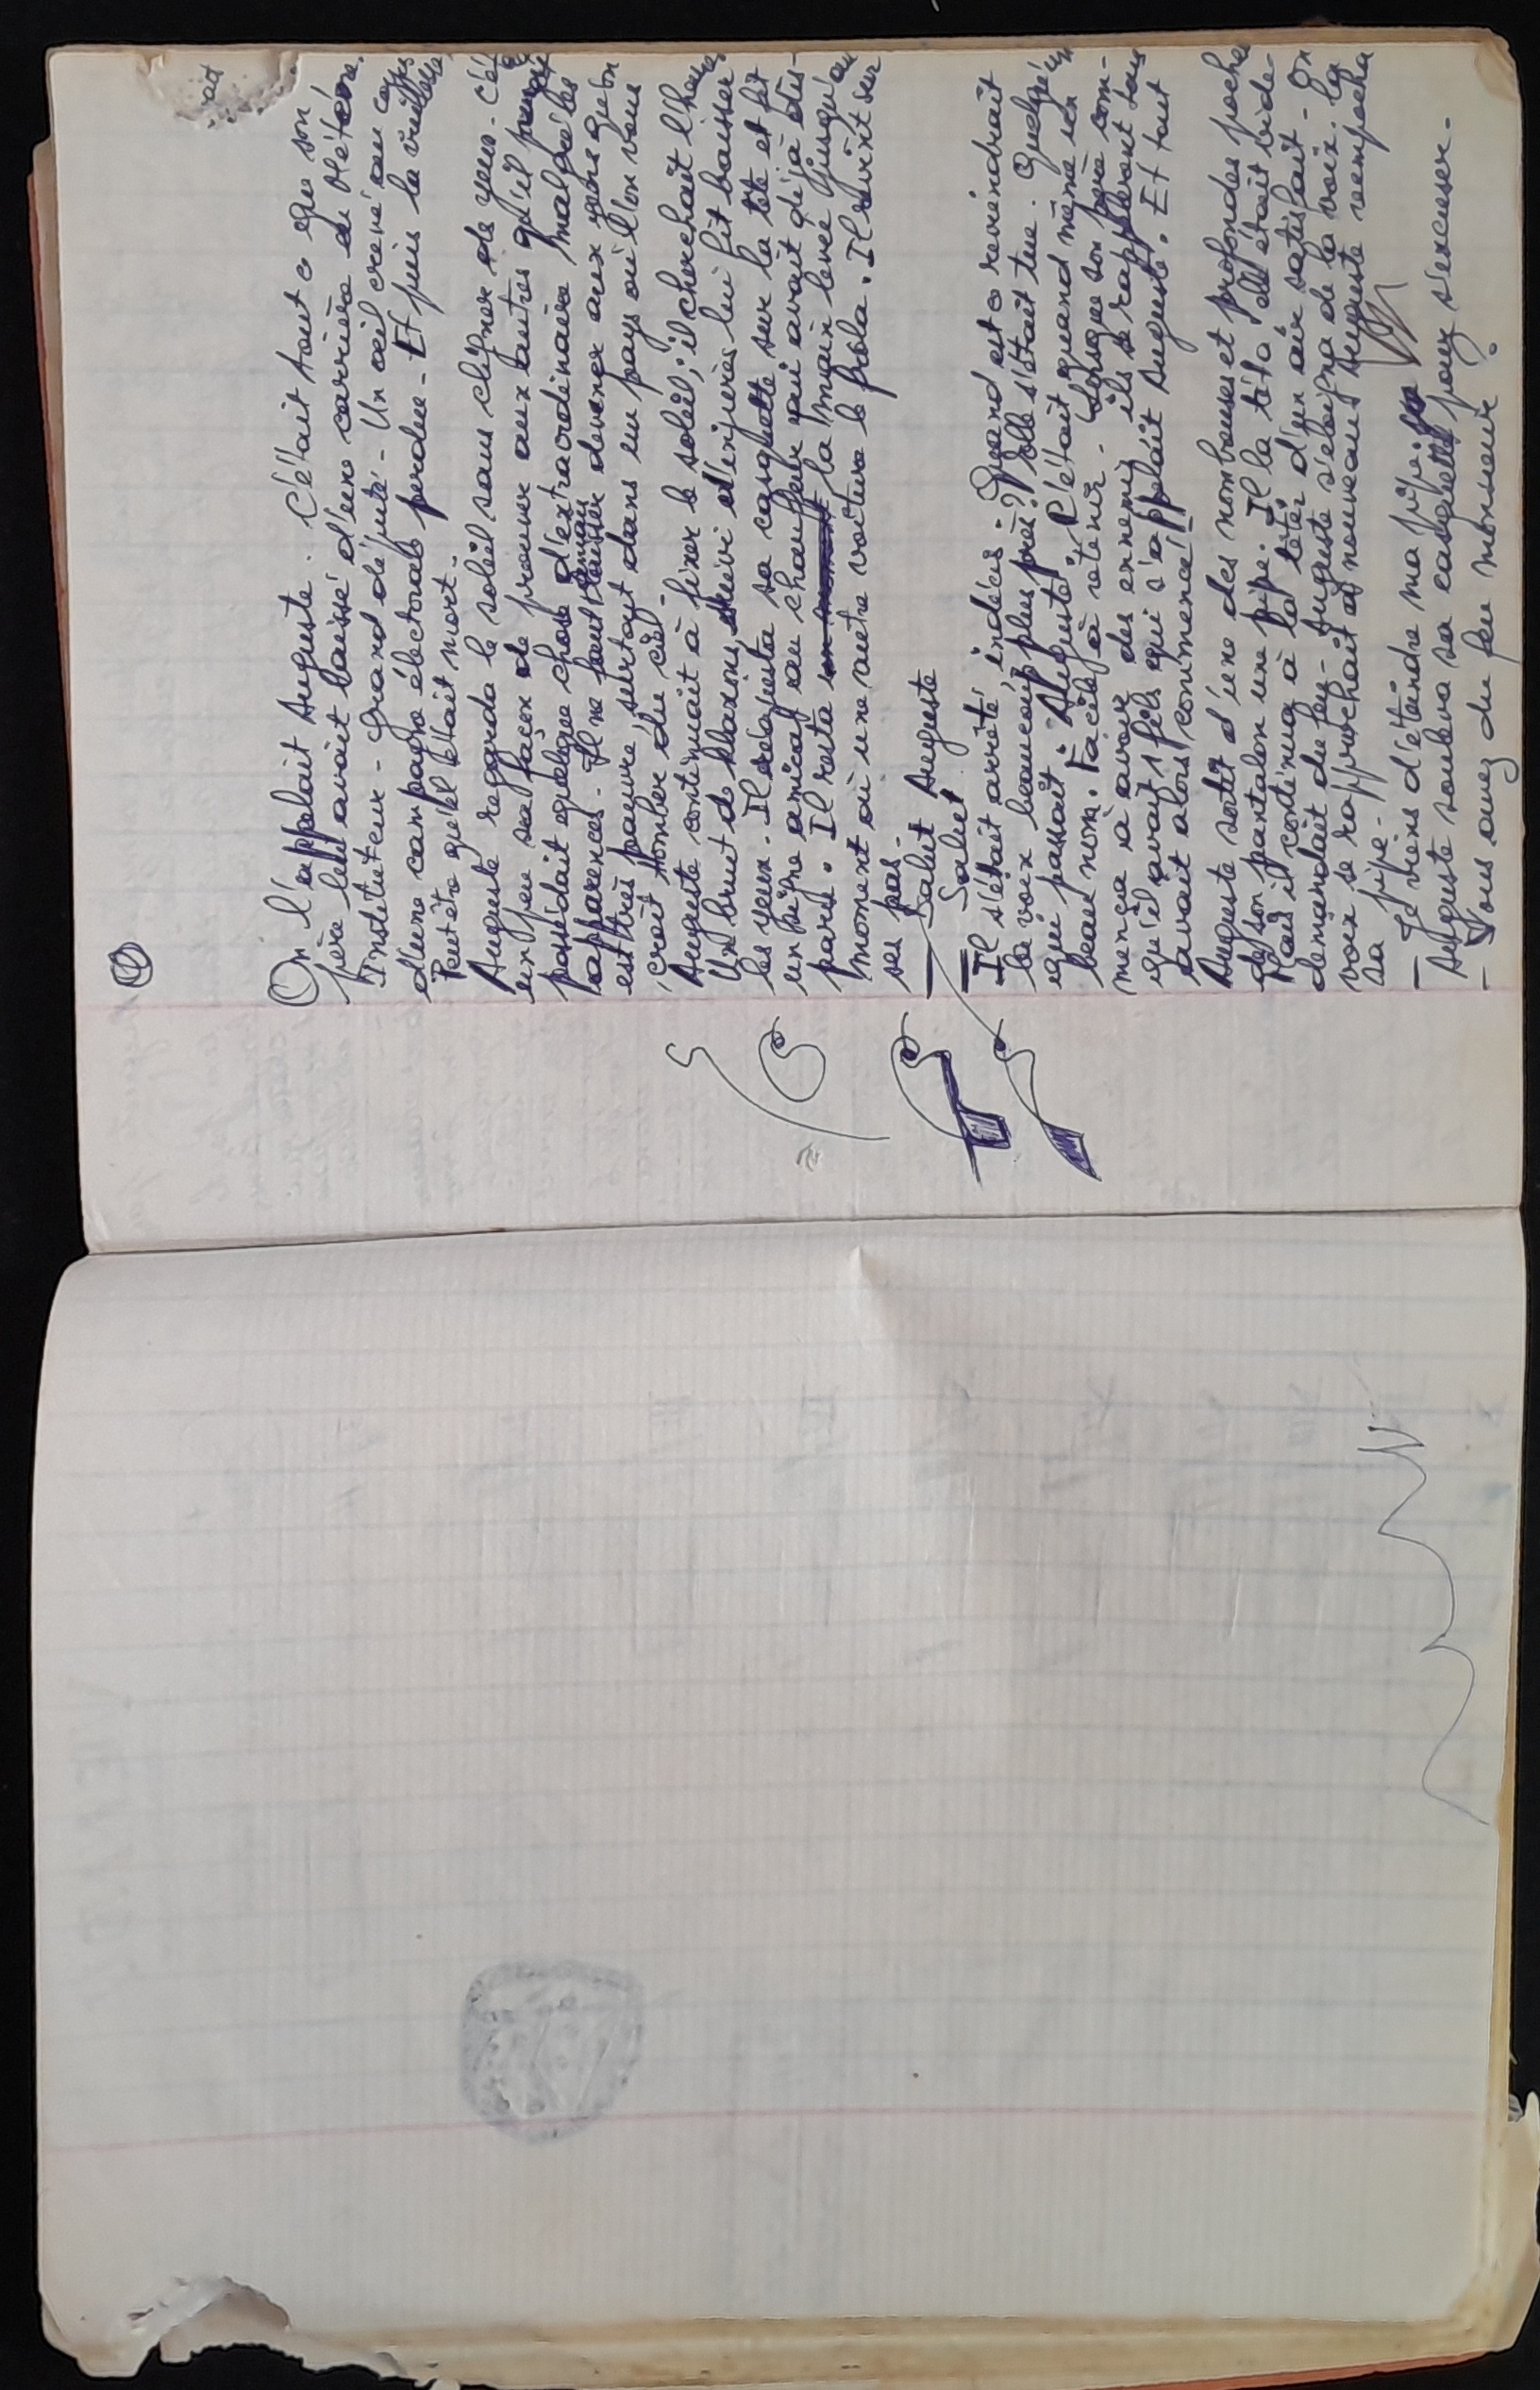 ①
On l'appelait Auguste. C'était tout ce que son
père lui avait laissé d'une carrière du
Instituteur - Grand député - Un œil crevé au cours
d'une campagne électorale perdue - Et puis la vieillesse,
Peut être qu'il était mort.
Auguste regarda le soleil sans cligner des yeux. C'ét
un peu sa façon de prouver aux autres qu'il
possédait quelque chose d'extraordinaire malgré les
apparences. Il ne faut jamais laisser deviner aux gens qu'on
est très pauvre, surtout dans un pays où l'on vous
croit tomber du ciel.
Auguste continuait à fixer le soleil; il cherchait l'heure
Un bruit de klaxons, suivi d'injures lui fit baisser
les yeux. Il réajusta sa casquette sur la tête et fit
un signe amical au chauffeur qui avait déjà dis-
paru. Il resta un moment la main levée jusqu'au
moment où une autre voiture le frôla. Il revint sur
ses pas.
— Salut Auguste
— Salut
Il s'était arrêté, indécis. Quand est-ce reviendrait
la voix beaucoup plus près? Elle s'était tue. Quelqu'un
qui passait. Auguste! C'était quand même un
beau nom. Facile à retenir. Lorsque son père com-
mença à avoir des ennemis ils se rappelèrent tous
qu'il avait 1 fils qui s'appelait Auguste. Et tout
avait alors commencé!!
Auguste sortit d'une des nombreuses et profondes poches
de son pantalon une pipe. Il la téta. Elle était vide.
Mais il continua à la téter d'un air satisfait - On
demandait du feu - Auguste s'éloigna de la voix. La
voix se rapprochait à nouveau Auguste rempocha
sa pipe -
— Je viens d'éteindre ma pipe.
Auguste souleva sa casquette pour s'excuser.
— Vous avez du feu monsieur?